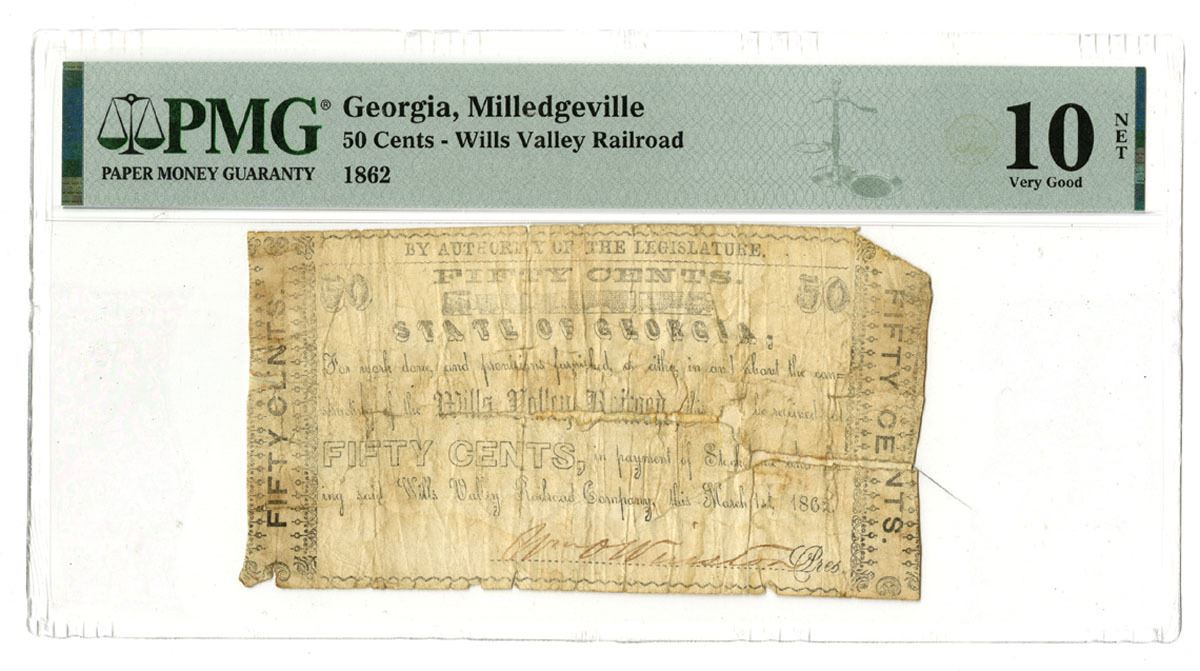 PMG®
PAPER MONEY GUARANTY
Georgia, Milledgeville
50 Cents - Wills Valley Railroad
1862
10
NET
Very Good
BY AUTHORITY OF THE LEGISLATURE.
FIFTY CENTS.
50
50
STATE OF GEORGIA;
For work done, and provisions furnished, at either in and about the con=
of the Wills Valley Railroad, this be received at
FIFTY CENTS, in payment of Stock
ing said Wills Valley Railroad Company, this March 1st, 1862.
Wm O Winston Pres
FIFTY CENTS.
FIFTY CENTS.